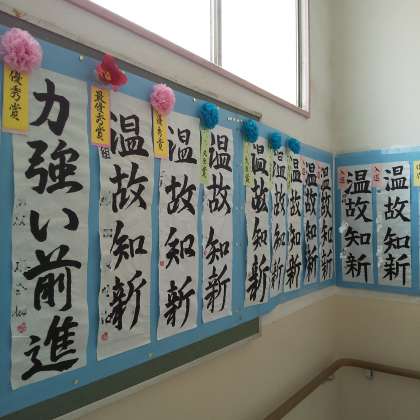 優秀賞
力強い前進
最優秀賞
温故知新
優秀賞
温故知新
温故知新
温故知新
温故知新
温故知新
温故知新
温故知新
入選
温故知新
入選
温故知新